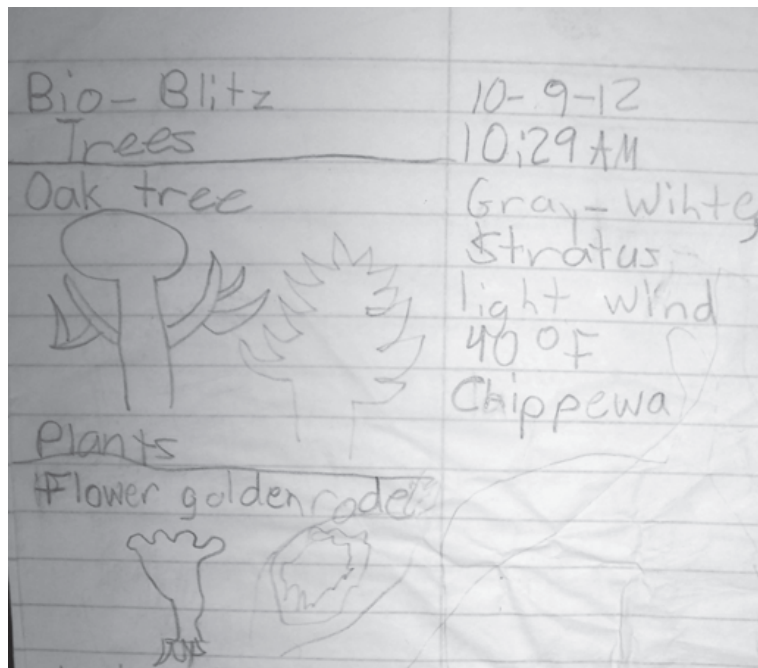 Bio-Blitz
Trees
Oak tree
Plants
Flower goldenrode
10-9-12
10:29 AM
Gray-Wihte,
Stratus,
light wind
40°F
Chippewa